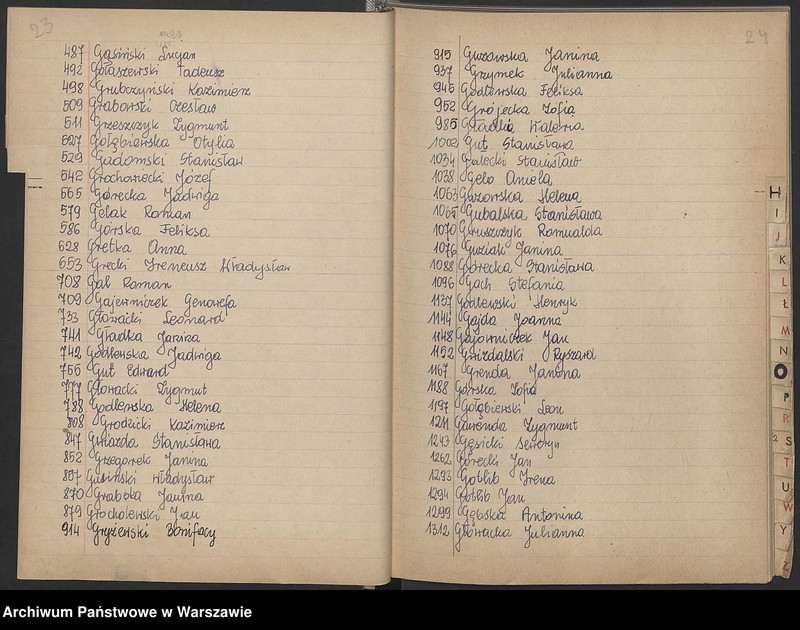 23
487 Gąsiński Lucjan
492 Gołaszewski Tadeusz
498 Grubczyński Kazimierz
509 Grabowski Czesław
511 Grzeszczyk Zygmunt
527 Gołębiowska Otylia
529 Gadomski Stanisław
542 Grochowiecki Józef
565 Górecka Jadwiga
579 Gelak Roman
586 Górska Feliksa
628 Gretka Anna
653 Grecki Ireneusz Władysław
708 Gal Roman
709 Gajermiczek Genowefa
733 Głowacki Leonard
741 Gładka Janina
742 Godlewska Jadwiga
755 Gut Edward
777 Głowacki Zygmunt
788 Godlewska Helena
808 Grodzicki Kazimierz
847 Gwiazda Stanisława
852 Grzegorek Janina
857 Gąsiński Władysław
870 Grabska Janina
879 Grocholewski Jan
914 Gryżewski Bonifacy
24
915 Guzowska Janina
937 Grzymek Julianna
945 Godlewska Feliksa
952 Grójecka Zofia
985 Gładka Waleria
1002 Gut Stanisława
1034 Gałecki Stanisław
1038 Gelo Aniela
1063 Głozowska Helena
1065 Gubalska Stanisława
1070 Gruszczyk Romualda
1076 Guziak Janina
1088 Górecka Stanisława
1096 Gach Stefania
1137 Godlewski Henryk
1144 Gajda Joanna
1148 Gajowniczek Jan
1152 Gwizdalski Ryszard
1167 Grenda Janina
1188 Górska Zofia
1197 Gołębiewski Leon
1211 Gawenda Zygmunt
1243 Gęsicki Seweryn
1262 Górecki Jan
1293 Gotlib Irena
1294 Gotlib Jan
1299 Gębska Antonina
1312 Głowacka Julianna
H
I
J
K
L
Ł
M
N
O
P
R
S
T
U
W
Y
Z
Archiwum Państwowe w Warszawie